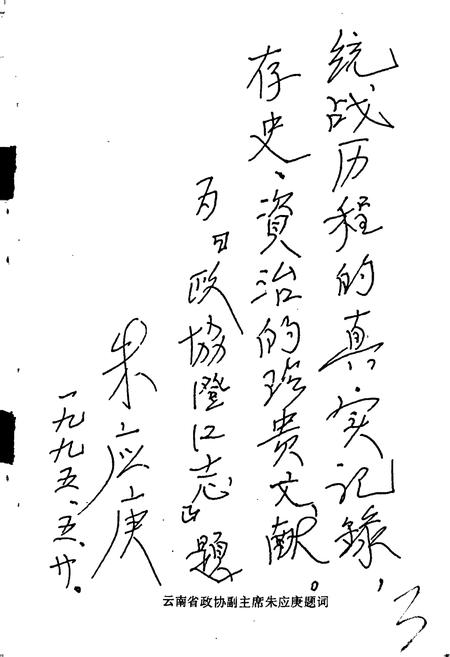 统战历程的真实记録，
存史、資治的珍贵文献。
为『政協澄江志』题
朱应庚
一九九五.五.廿.
云南省政协副主席朱应庚题词